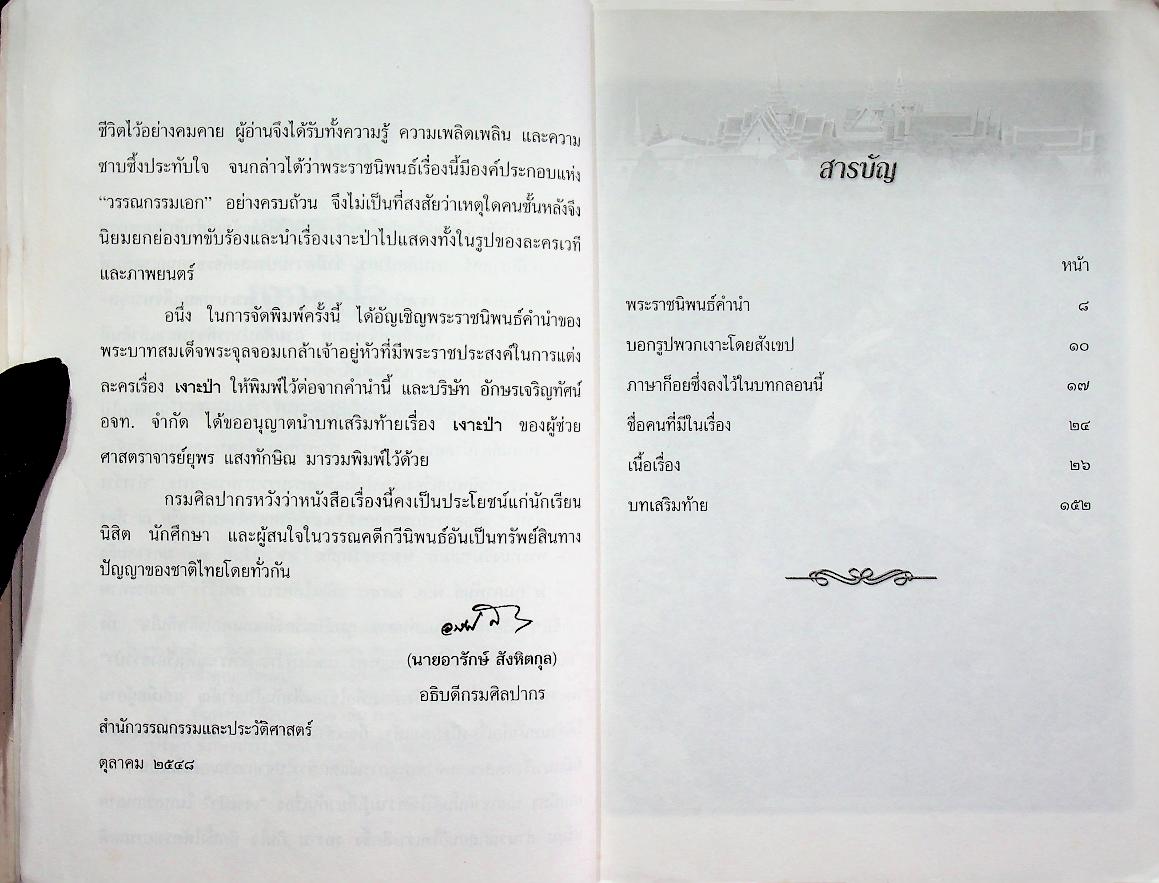 ชีวิตไว้อย่างคมคาย ผู้อ่านจึงได้รับทั้งความรู้ ความเพลิดเพลิน และความ
ซาบซึ้งประทับใจ จนกล่าวได้ว่าพระราชนิพนธ์เรื่องนี้มีองค์ประกอบแห่ง
“วรรณกรรมเอก” อย่างครบถ้วน จึงไม่เป็นที่สงสัยว่าเหตุใดคนชั้นหลังจึง
นิยมยกย่องบทขับร้องและนำเรื่องเงาะป่าไปแสดงทั้งในรูปของละครเวที
และภาพยนตร์
อนึ่ง ในการจัดพิมพ์ครั้งนี้ ได้อัญเชิญพระราชนิพนธ์คำนำของ
พระบาทสมเด็จพระจุลจอมเกล้าเจ้าอยู่หัวที่มีพระราชประสงค์ในการแต่ง
ละครเรื่อง เงาะป่า ให้พิมพ์ไว้ต่อจากคำนำนี้ และบริษัท อักษรเจริญทัศน์
อจท. จำกัด ได้ขออนุญาตนำบทเสริมท้ายเรื่อง เงาะป่า ของผู้ช่วย
ศาสตราจารย์ยุพร แสงทักษิณ มารวมพิมพ์ไว้ด้วย
กรมศิลปากรหวังว่าหนังสือเรื่องนี้คงเป็นประโยชน์แก่นักเรียน
นิสิต นักศึกษา และผู้สนใจในวรรณคดีกวีนิพนธ์อันเป็นทรัพย์สินทาง
ปัญญาของชาติไทยโดยทั่วกัน
(นายอารักษ์ สังหิตกุล)
อธิบดีกรมศิลปากร
สำนักวรรณกรรมและประวัติศาสตร์
ตุลาคม ๒๕๔๘
สารบัญ
หน้า
พระราชนิพนธ์คำนำ ๘
บอกรูปพวกเงาะโดยสังเขป ๑๐
ภาษาก็อยซึ่งลงไว้ในบทกลอนนี้ ๑๗
ชื่อคนที่มีในเรื่อง ๒๔
เนื้อเรื่อง ๒๖
บทเสริมท้าย ๑๕๒